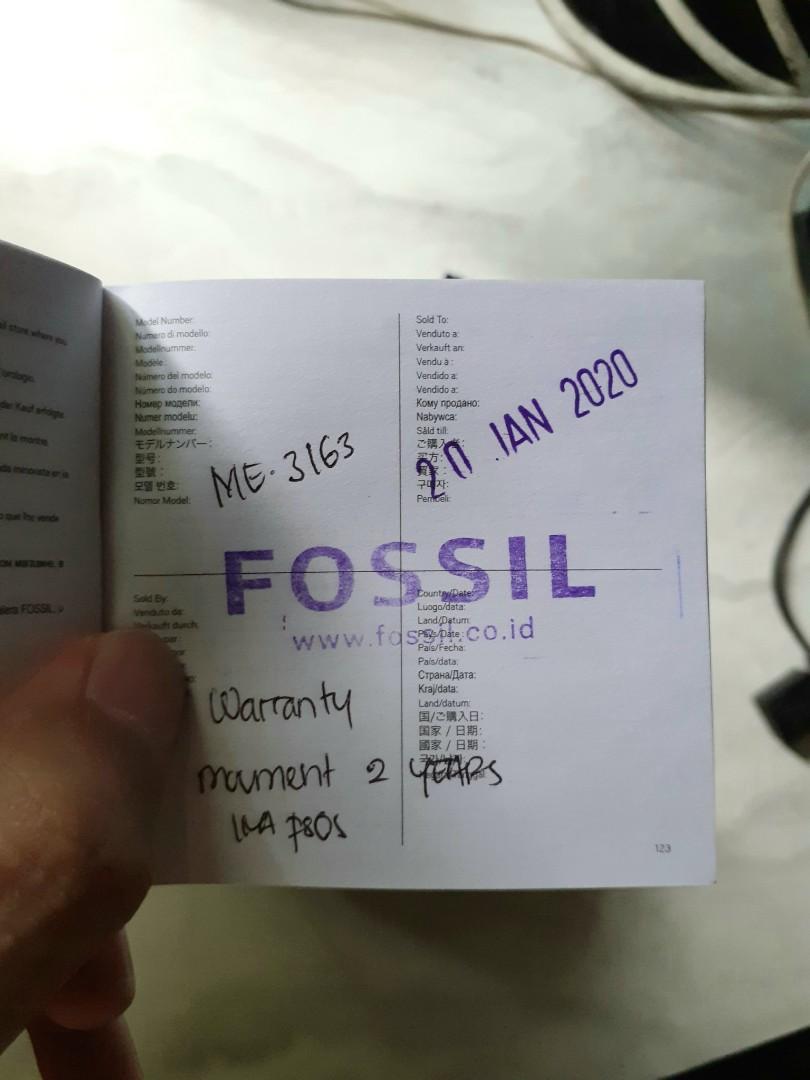 il store where you
l'orologio.
der Kauf erfolgte
nt la montre.
o que lho vende
ом магазине, в
Model Number:
Numero di modello:
Modellnummer:
Modèle:
Número del modelo:
Número do modelo:
Номер модели:
Numer modelu:
Modellnummer:
モデルナンバー:
型号:
型號:
모델 번호:
Nomor Model:
ME-3163
Sold To:
Venduto a:
Verkauft an:
Vendu à :
Vendido a:
Vendido a:
Кому продано:
Nabywca:
Såld till:
ご購入者:
买方:
買家:
구매자:
Pembeli:
20 JAN 2020
FOSSIL
www.fossil.co.id
Sold By:
Venduto da:
Verkauft durch:
par:
Country/Date:
Luogo/data:
Land/Datum:
Pays/Date:
País/Fecha:
País/data:
Страна/Дата:
Kraj/data:
Land/datum:
国/ご購入日:
国家 / 日期:
國家 / 日期:
Warranty
moument 2 YEARS
123